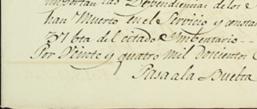 importan las Dependencias de los
han Muerto en el Servicio y constan
bta del citado Imbentario
Por Veinte y quatro mil Docientos
Pasa a la Buelta